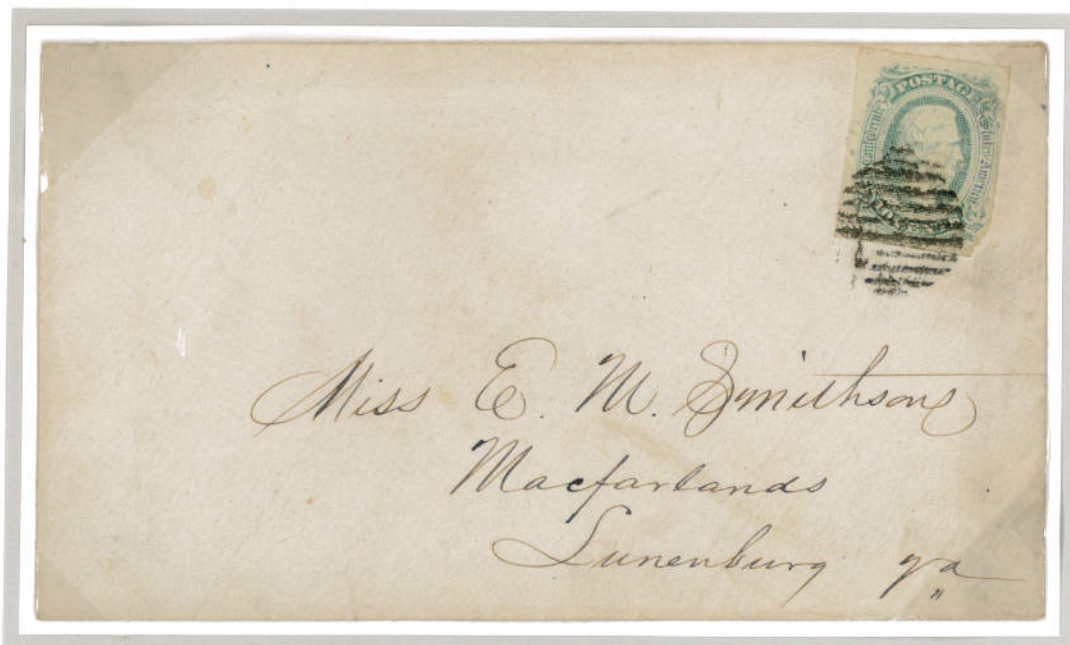 POSTAGE
Miss E. M. Smithson
Macfarlands
Lunenburg Va